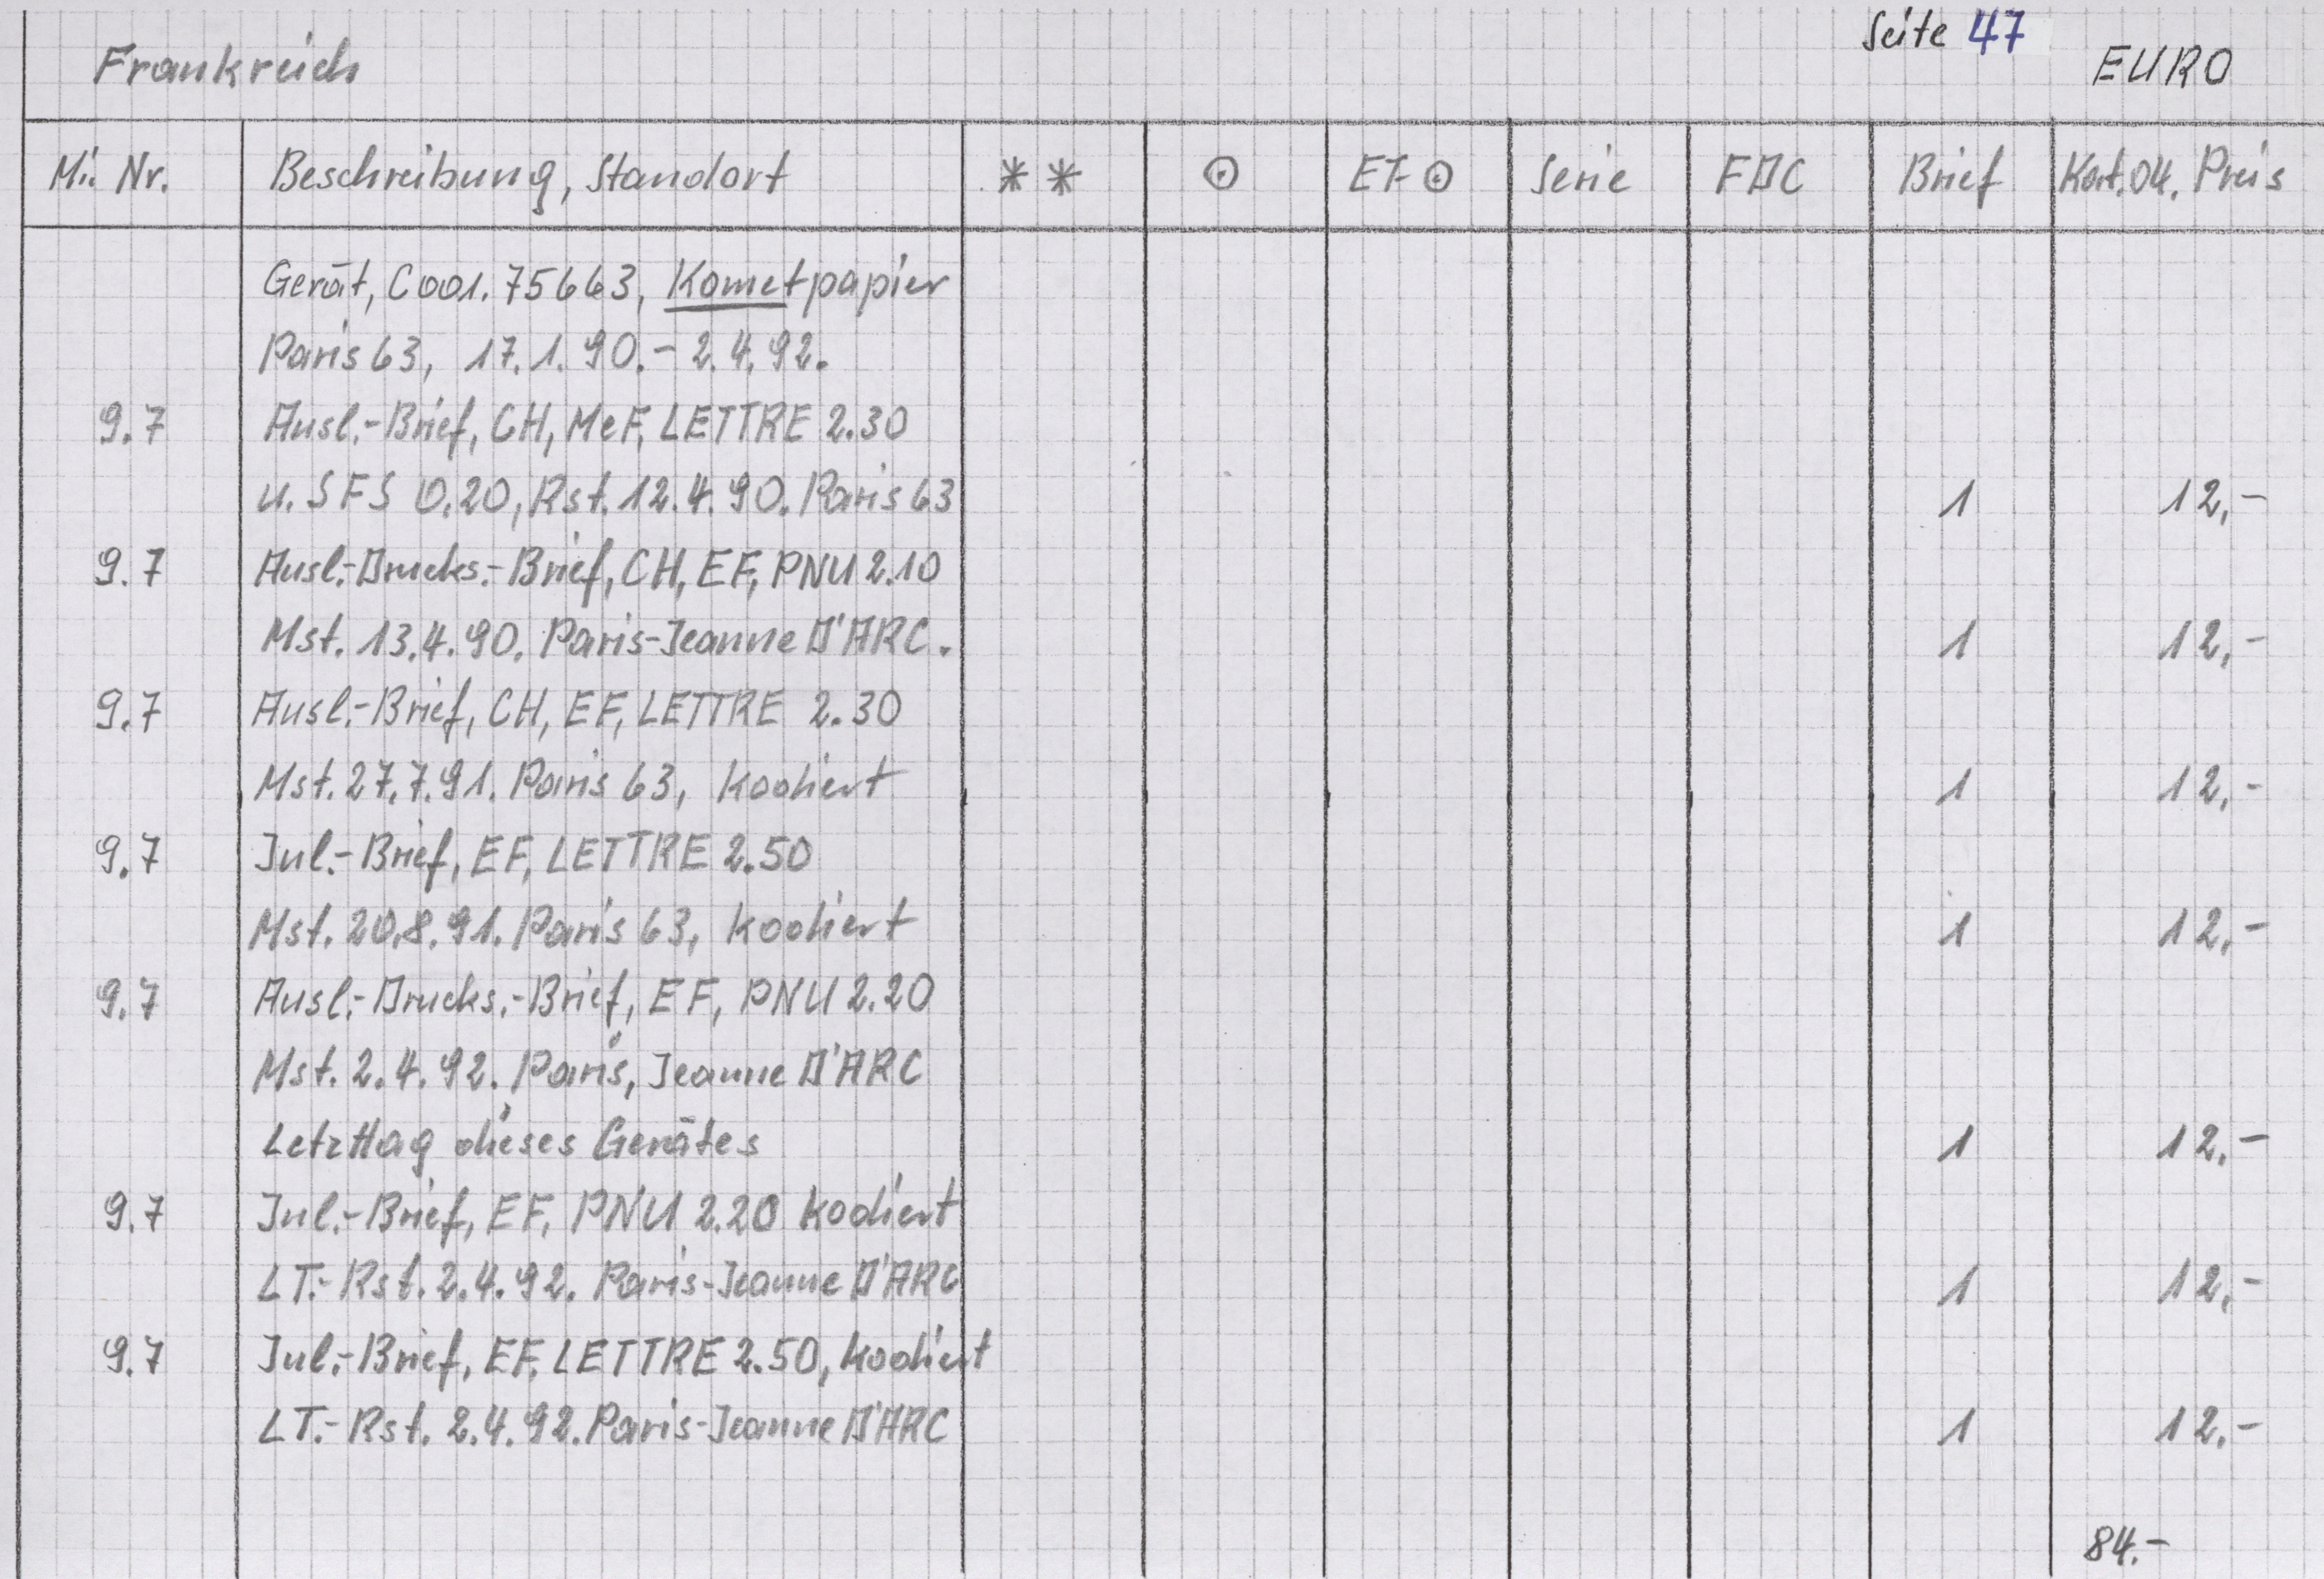 Seite 47
Frankreich EURO
Mi. Nr. Beschreibung, Standort ** ⊙ ET-⊙ Serie FDC Brief Kat.04. Preis
Gerät, C001.75663, Kometpapier
Paris 63, 17.1.90.- 2.4.92.
9.7 Ausl.-Brief, CH, MeF, LETTRE 2.30
u. SFS 0.20, Rst. 12.4.90. Paris 63 1 12,-
9.7 Ausl.-Drucks.-Brief, CH, EF, PNU 2.10
Mst. 13.4.90. Paris-Jeanne D'ARC. 1 12,-
9.7 Ausl.-Brief, CH, EF, LETTRE 2.30
Mst. 27.7.91. Paris 63, kodiert 1 12,-
9.7 Inl.-Brief, EF, LETTRE 2.50
Mst. 20.8.91. Paris 63, kodiert 1 12,-
9.7 Ausl.-Drucks.-Brief, EF, PNU 2.20
Mst. 2.4.92. Paris, Jeanne D'ARC
Letzttag dieses Gerätes 1 12,-
9.7 Inl.-Brief, EF, PNU 2.20 kodiert
LT.-Rst. 2.4.92. Paris-Jeanne D'ARC 1 12,-
9.7 Inl.-Brief, EF, LETTRE 2.50, kodiert
LT.-Rst. 2.4.92. Paris-Jeanne D'ARC 1 12,-
84.-